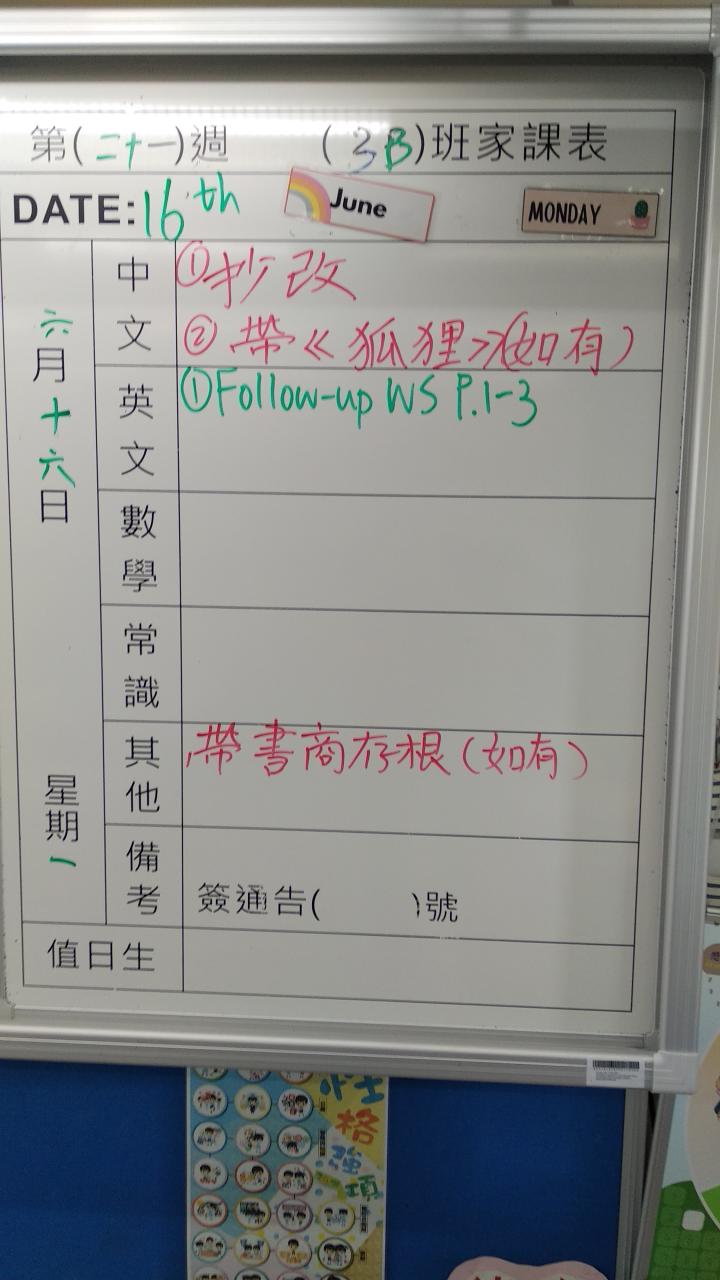 第(二十一)週 (3B)班家課表
DATE: 16th June MONDAY
六月十六日
星期一
中文
①抄改
②帶《狐狸》(如有)
英文
①Follow-up WS P.1-3
數學
常識
其他
帶書商存根(如有)
備考
簽通告( )號
值日生
性格強項